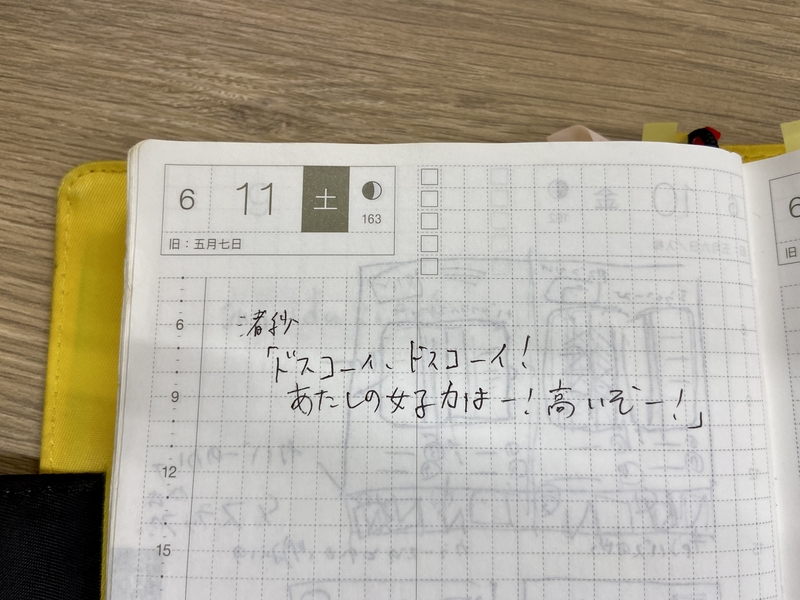 6 11 土 163
旧：五月七日
6
渚紗
「ドスコーイ、ドスコーイ！
9
あたしの女子力はー！高いぞー！」
12
15
6
旧